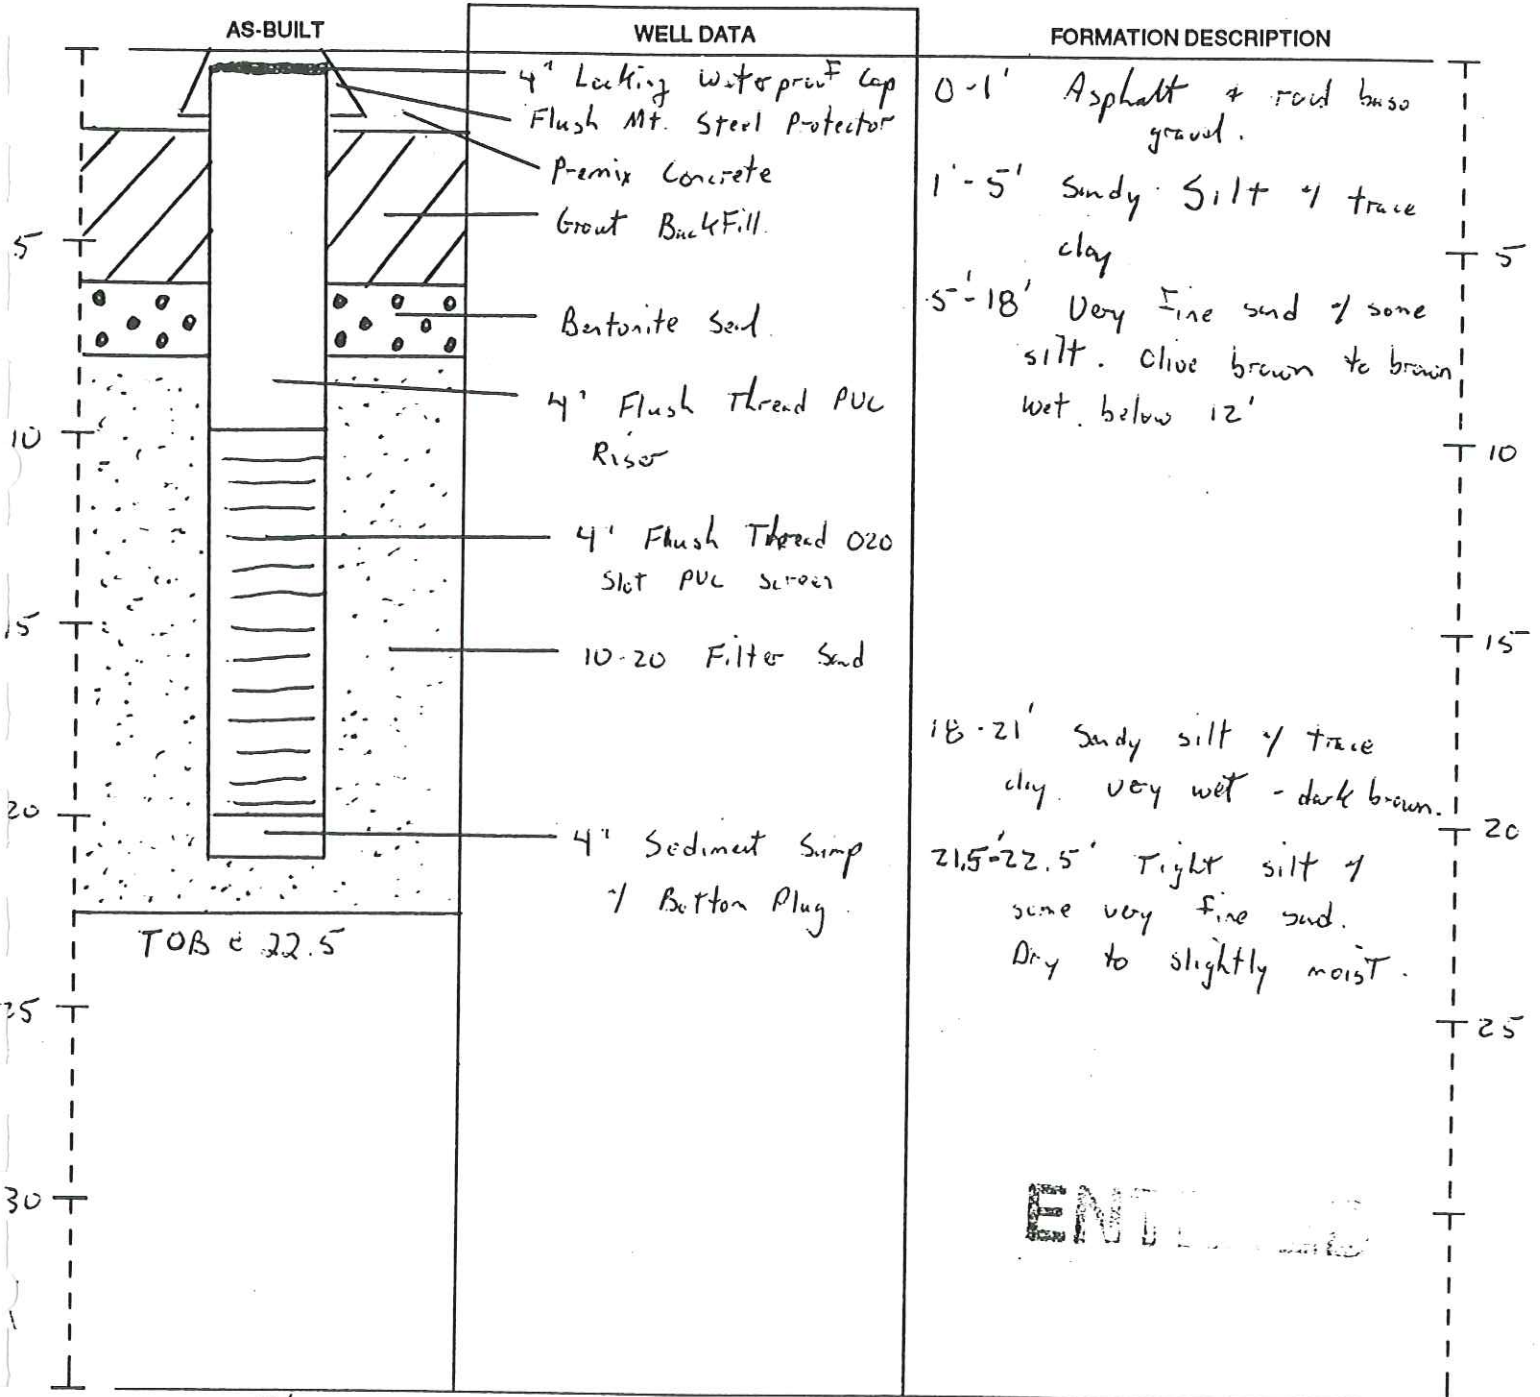 AS-BUILT
WELL DATA
FORMATION DESCRIPTION
4" Locking Waterproof Cap
Flush Mt. Steel Protector
Premix Concrete
Grout BackFill.
Bentonite Seal.
4" Flush Thread PVC
Riser
4" Flush Thread 020
Slot PVC Screen
10-20 Filter Sand
4" Sediment Sump
w/ Bottom Plug.
0-1' Asphalt & road base
gravel.
1'-5' Sandy Silt w/ trace
clay
5'-18' Very Fine sand w/ some
silt. Olive brown to brown
wet. below 12'
18-21' Sandy silt w/ trace
clay. very wet - dark brown.
21.5'-22.5' Tight silt w/
some very fine sand.
Dry to slightly moist.
TOB @ 22.5
5
10
15
20
25
30
5
10
15
20
25